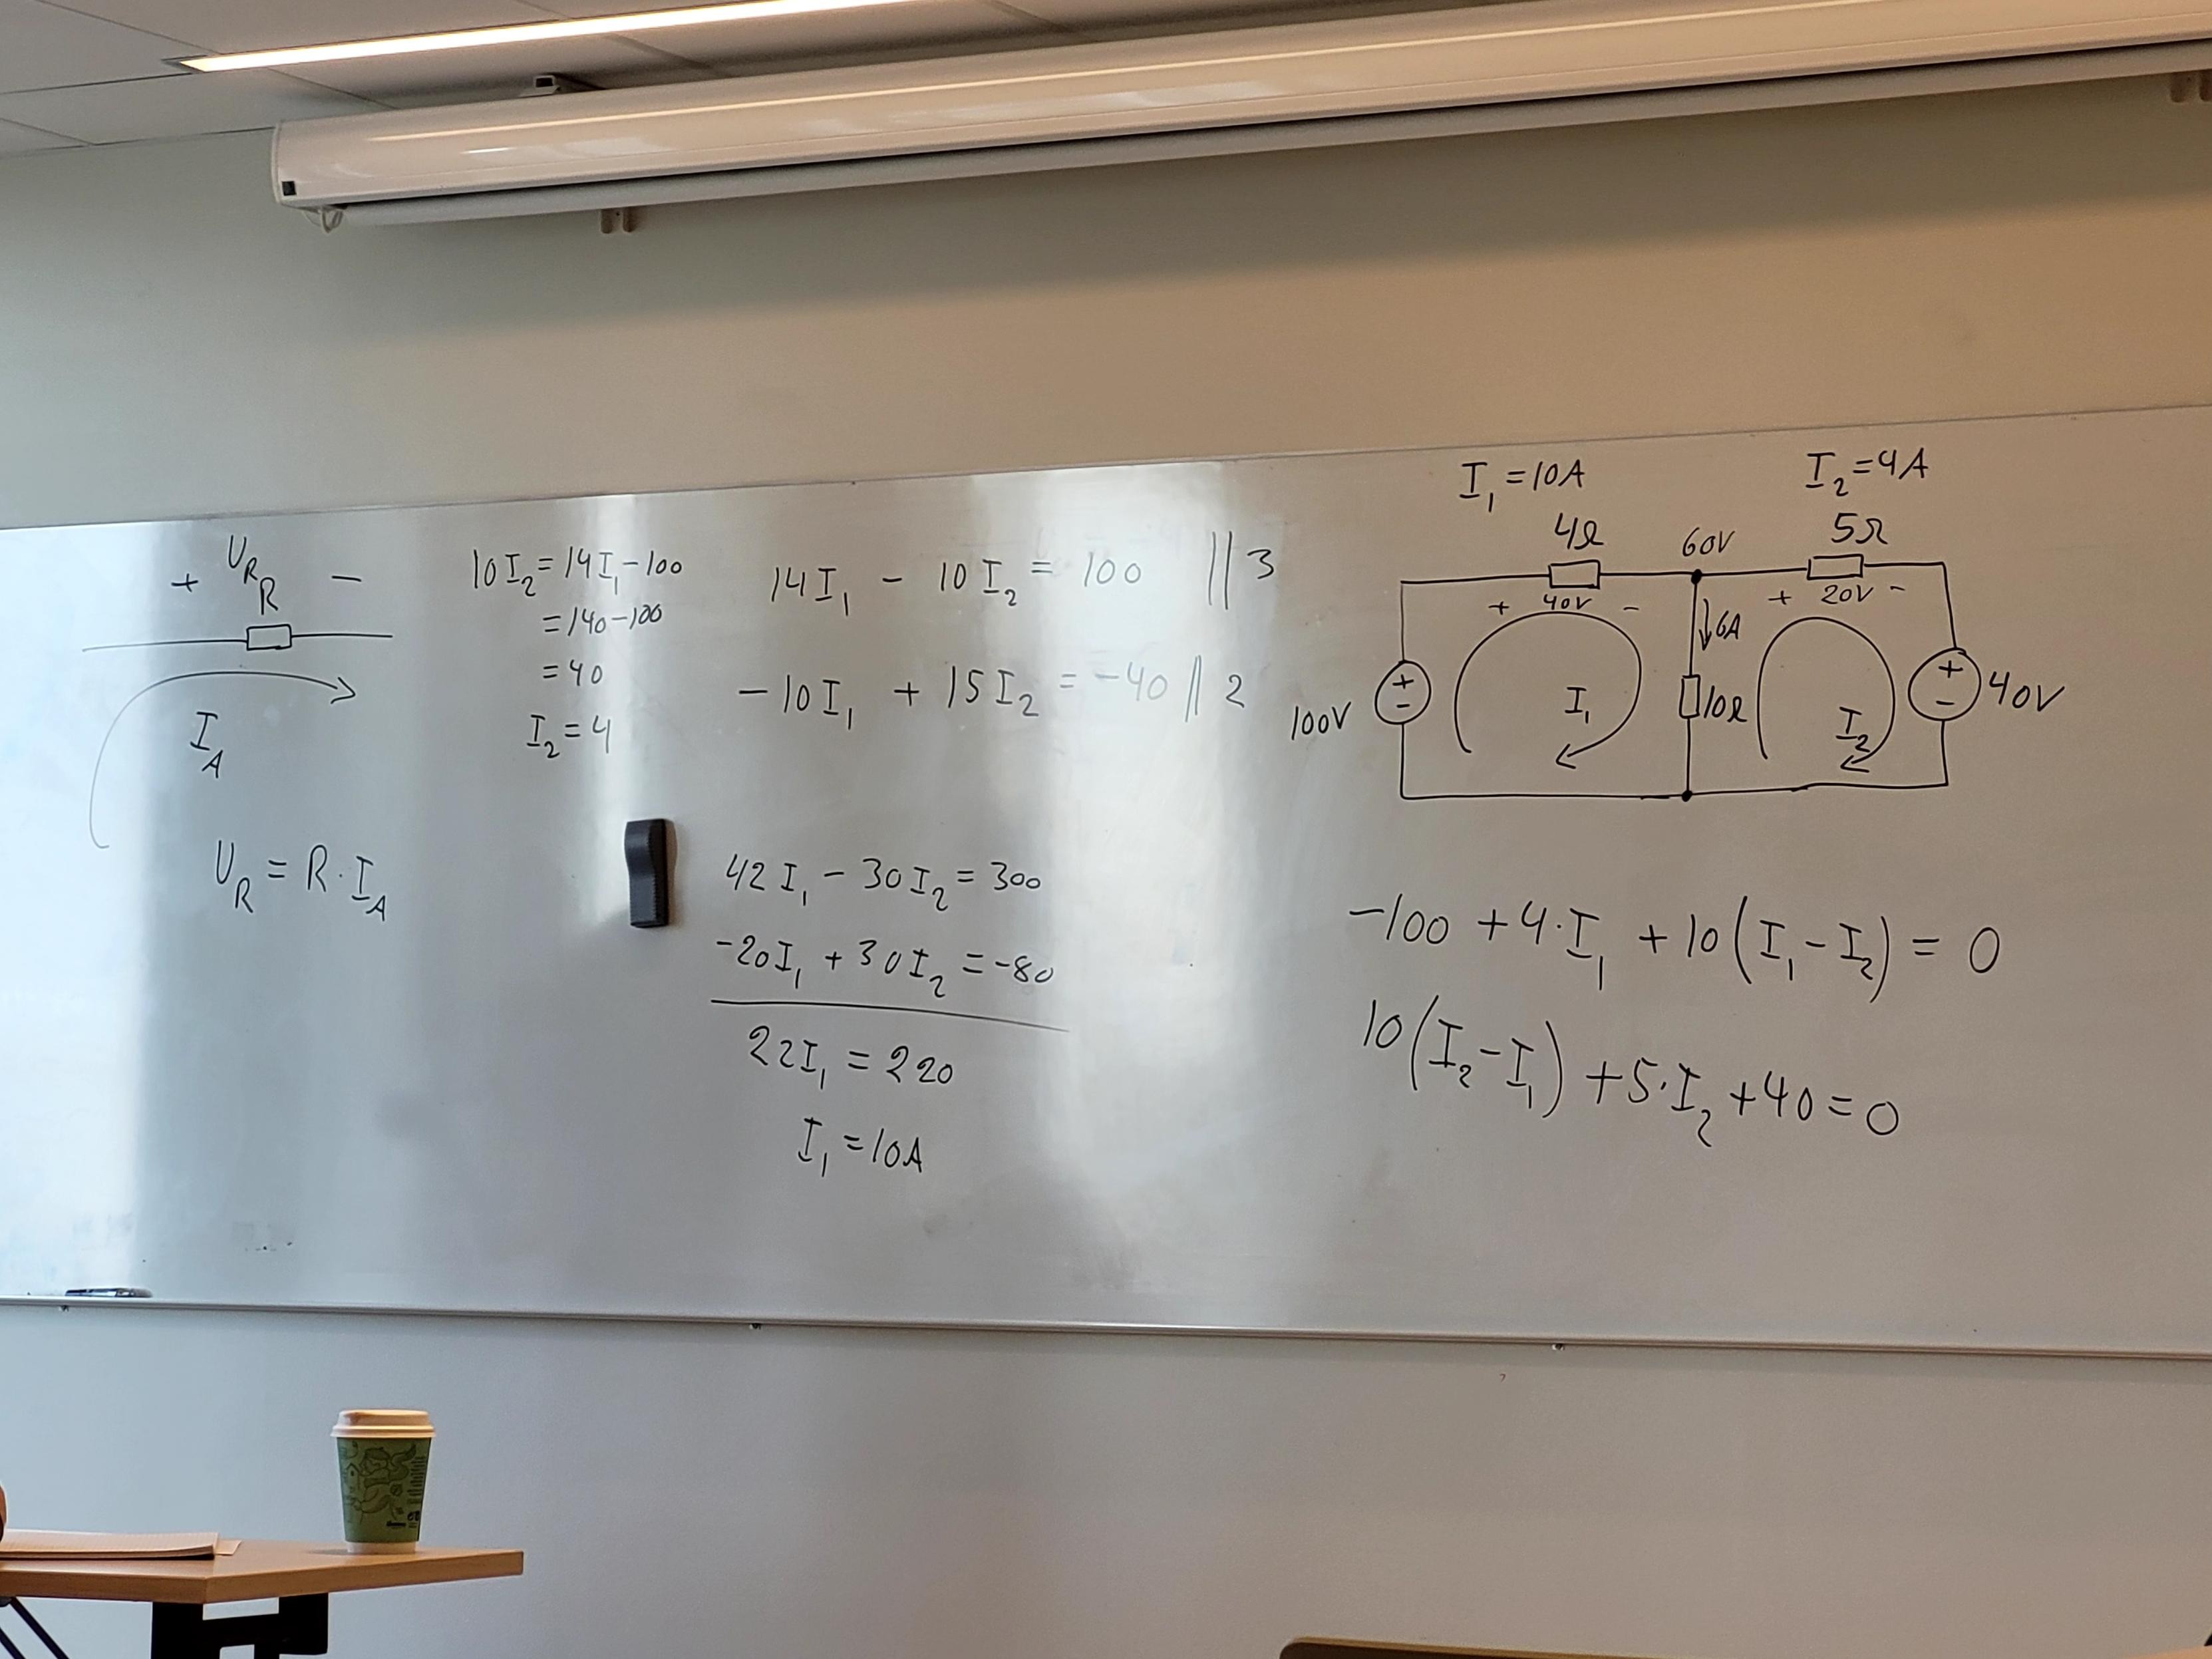 + U_R −
R
I_A
U_R = R · I_A
10I₂ = 14I₁ − 100
= 140 − 100
= 40
I₂ = 4
14I₁ − 10I₂ = 100 || 3
−10I₁ + 15I₂ = −40 || 2
42I₁ − 30I₂ = 300
−20I₁ + 30I₂ = −80
22I₁ = 220
I₁ = 10A
I₁ = 10A I₂ = 4A
4Ω 60V 5Ω
+ 40V − + 20V −
6A
100V + − I₁ 10Ω I₂ + − 40V
−100 + 4·I₁ + 10(I₁ − I₂) = 0
10(I₂ − I₁) + 5·I₂ + 40 = 0